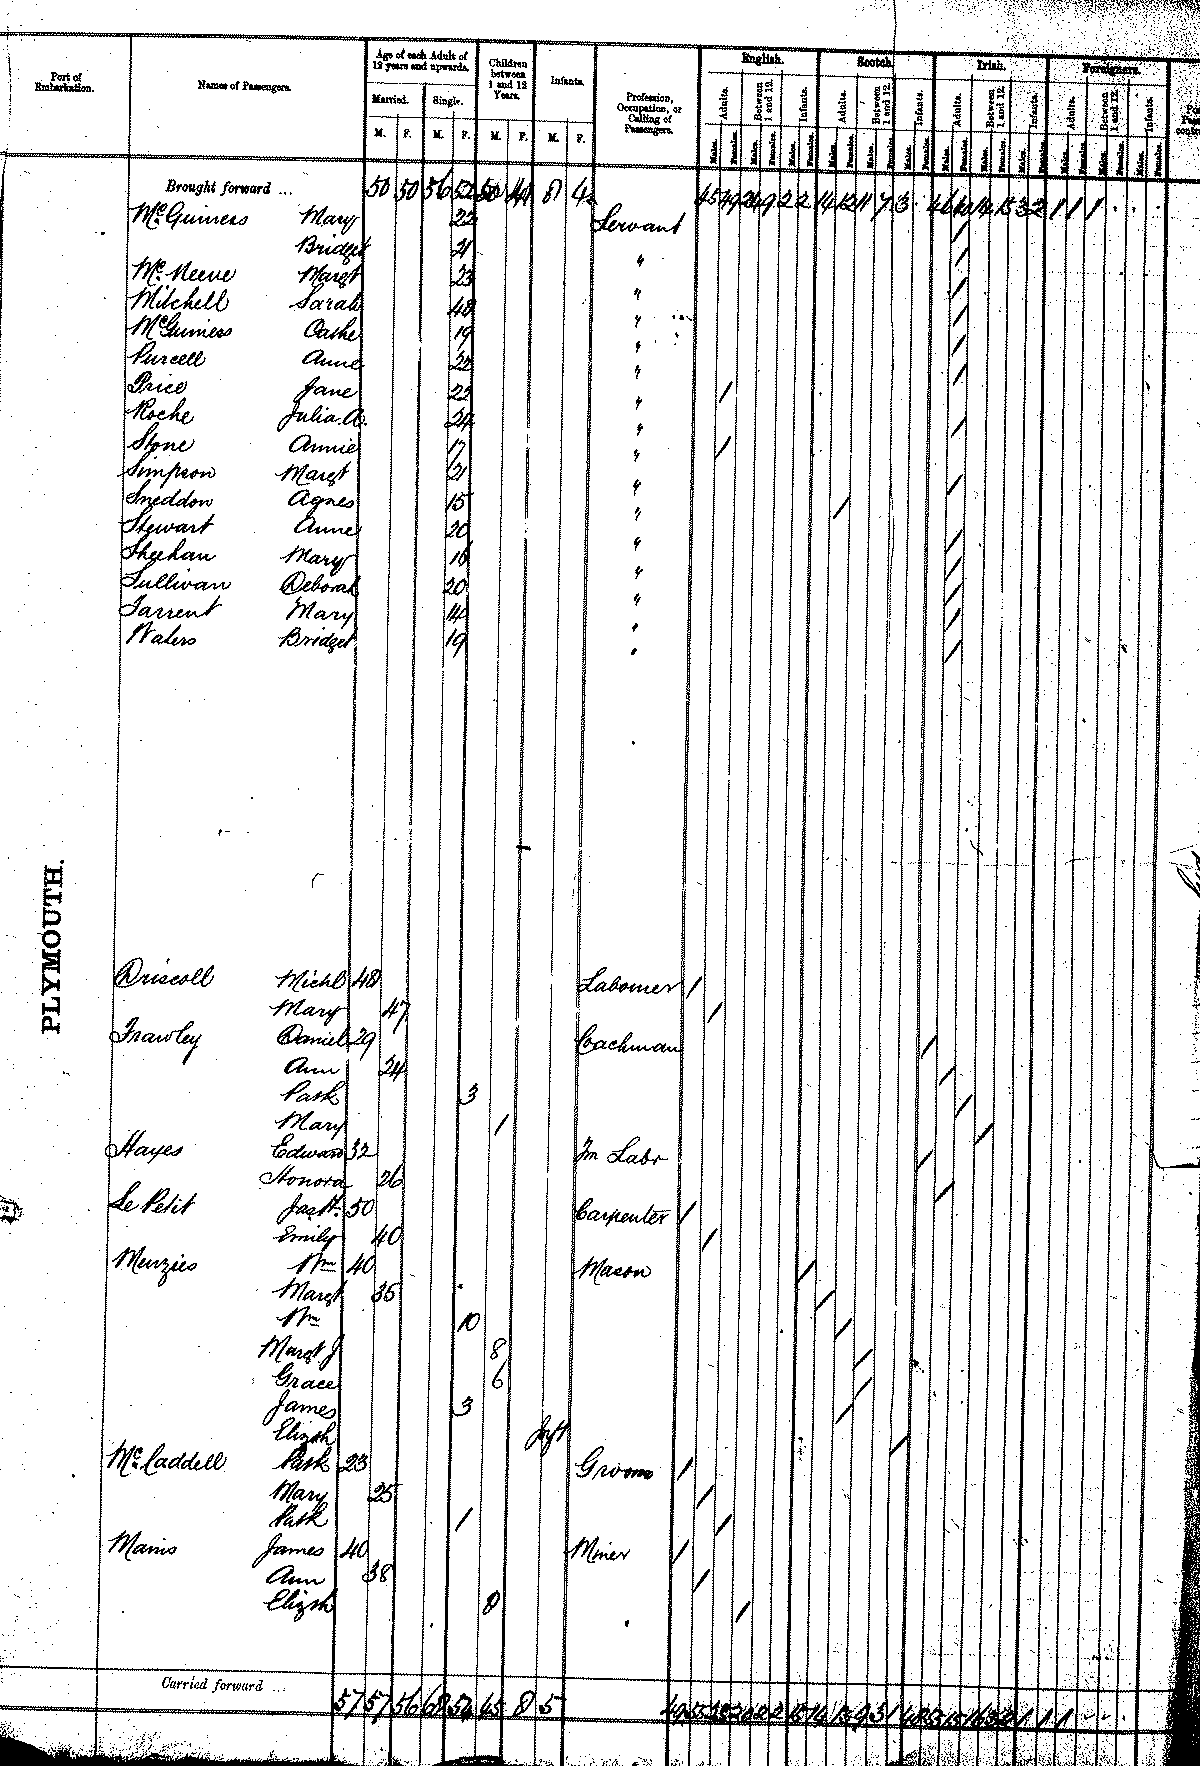 Port of Embarkation. Names of Passengers. Age of each Adult of 12 years and upwards. Children between 1 and 12 Years. Infants. Profession, Occupation, or Calling of Passengers. English. Scotch. Irish. Foreigners.
Married. Single. Adults. Between 1 and 12. Infants. Adults. Between 1 and 12. Infants. Adults. Between 1 and 12. Infants. Adults. Between 1 and 12. Infants.
M. F. M. F. M. F. M. F. Males. Females. Males. Females. Males. Females. Males. Females. Males. Females. Males. Females. Males. Females. Males. Females. Males. Females. Males. Females. Males. Females. Males. Females.
Brought forward ... 50 50 56 52 50 41 8 4
McGuiness Mary 22 Servant /
Bridget 21 " /
McNeeve Margt 23 " /
Mitchell Sarah 48 " /
McGuiness Cathe 19 " /
Purcell Anne 22 " /
Price Jane 22 " /
Roche Julia A. 24 " /
Stone Annie 17 " /
Simpson Margt 21 " /
Sneddon Agnes 15 " /
Stewart Anne 20 " /
Sheehan Mary 18 " /
Sullivan Deborah 20 " /
Tarrent Mary 14 " /
Waters Bridget 19 " /
PLYMOUTH.
Driscoll Michl 48 Labourer /
Mary 47 /
Frawley Daniel 29 Coachman /
Ann 24 /
Patk 3 /
Mary 1 /
Hayes Edward 32 Fm Labr /
Honora 26 /
Le Petit Jas H. 50 Carpenter /
Emily 40 /
Menzies Wm 40 Mason /
Margt 35 /
Wm 10 /
Margt J 8 /
Grace 6 /
James 3 /
Elizth Inft /
McCaddell Patk 23 Groom /
Mary 25 /
Patk 1 /
Manis James 40 Miner /
Ann 38 /
Elizth 8 /
Carried forward ... 57 57 56 68 54 45 8 5